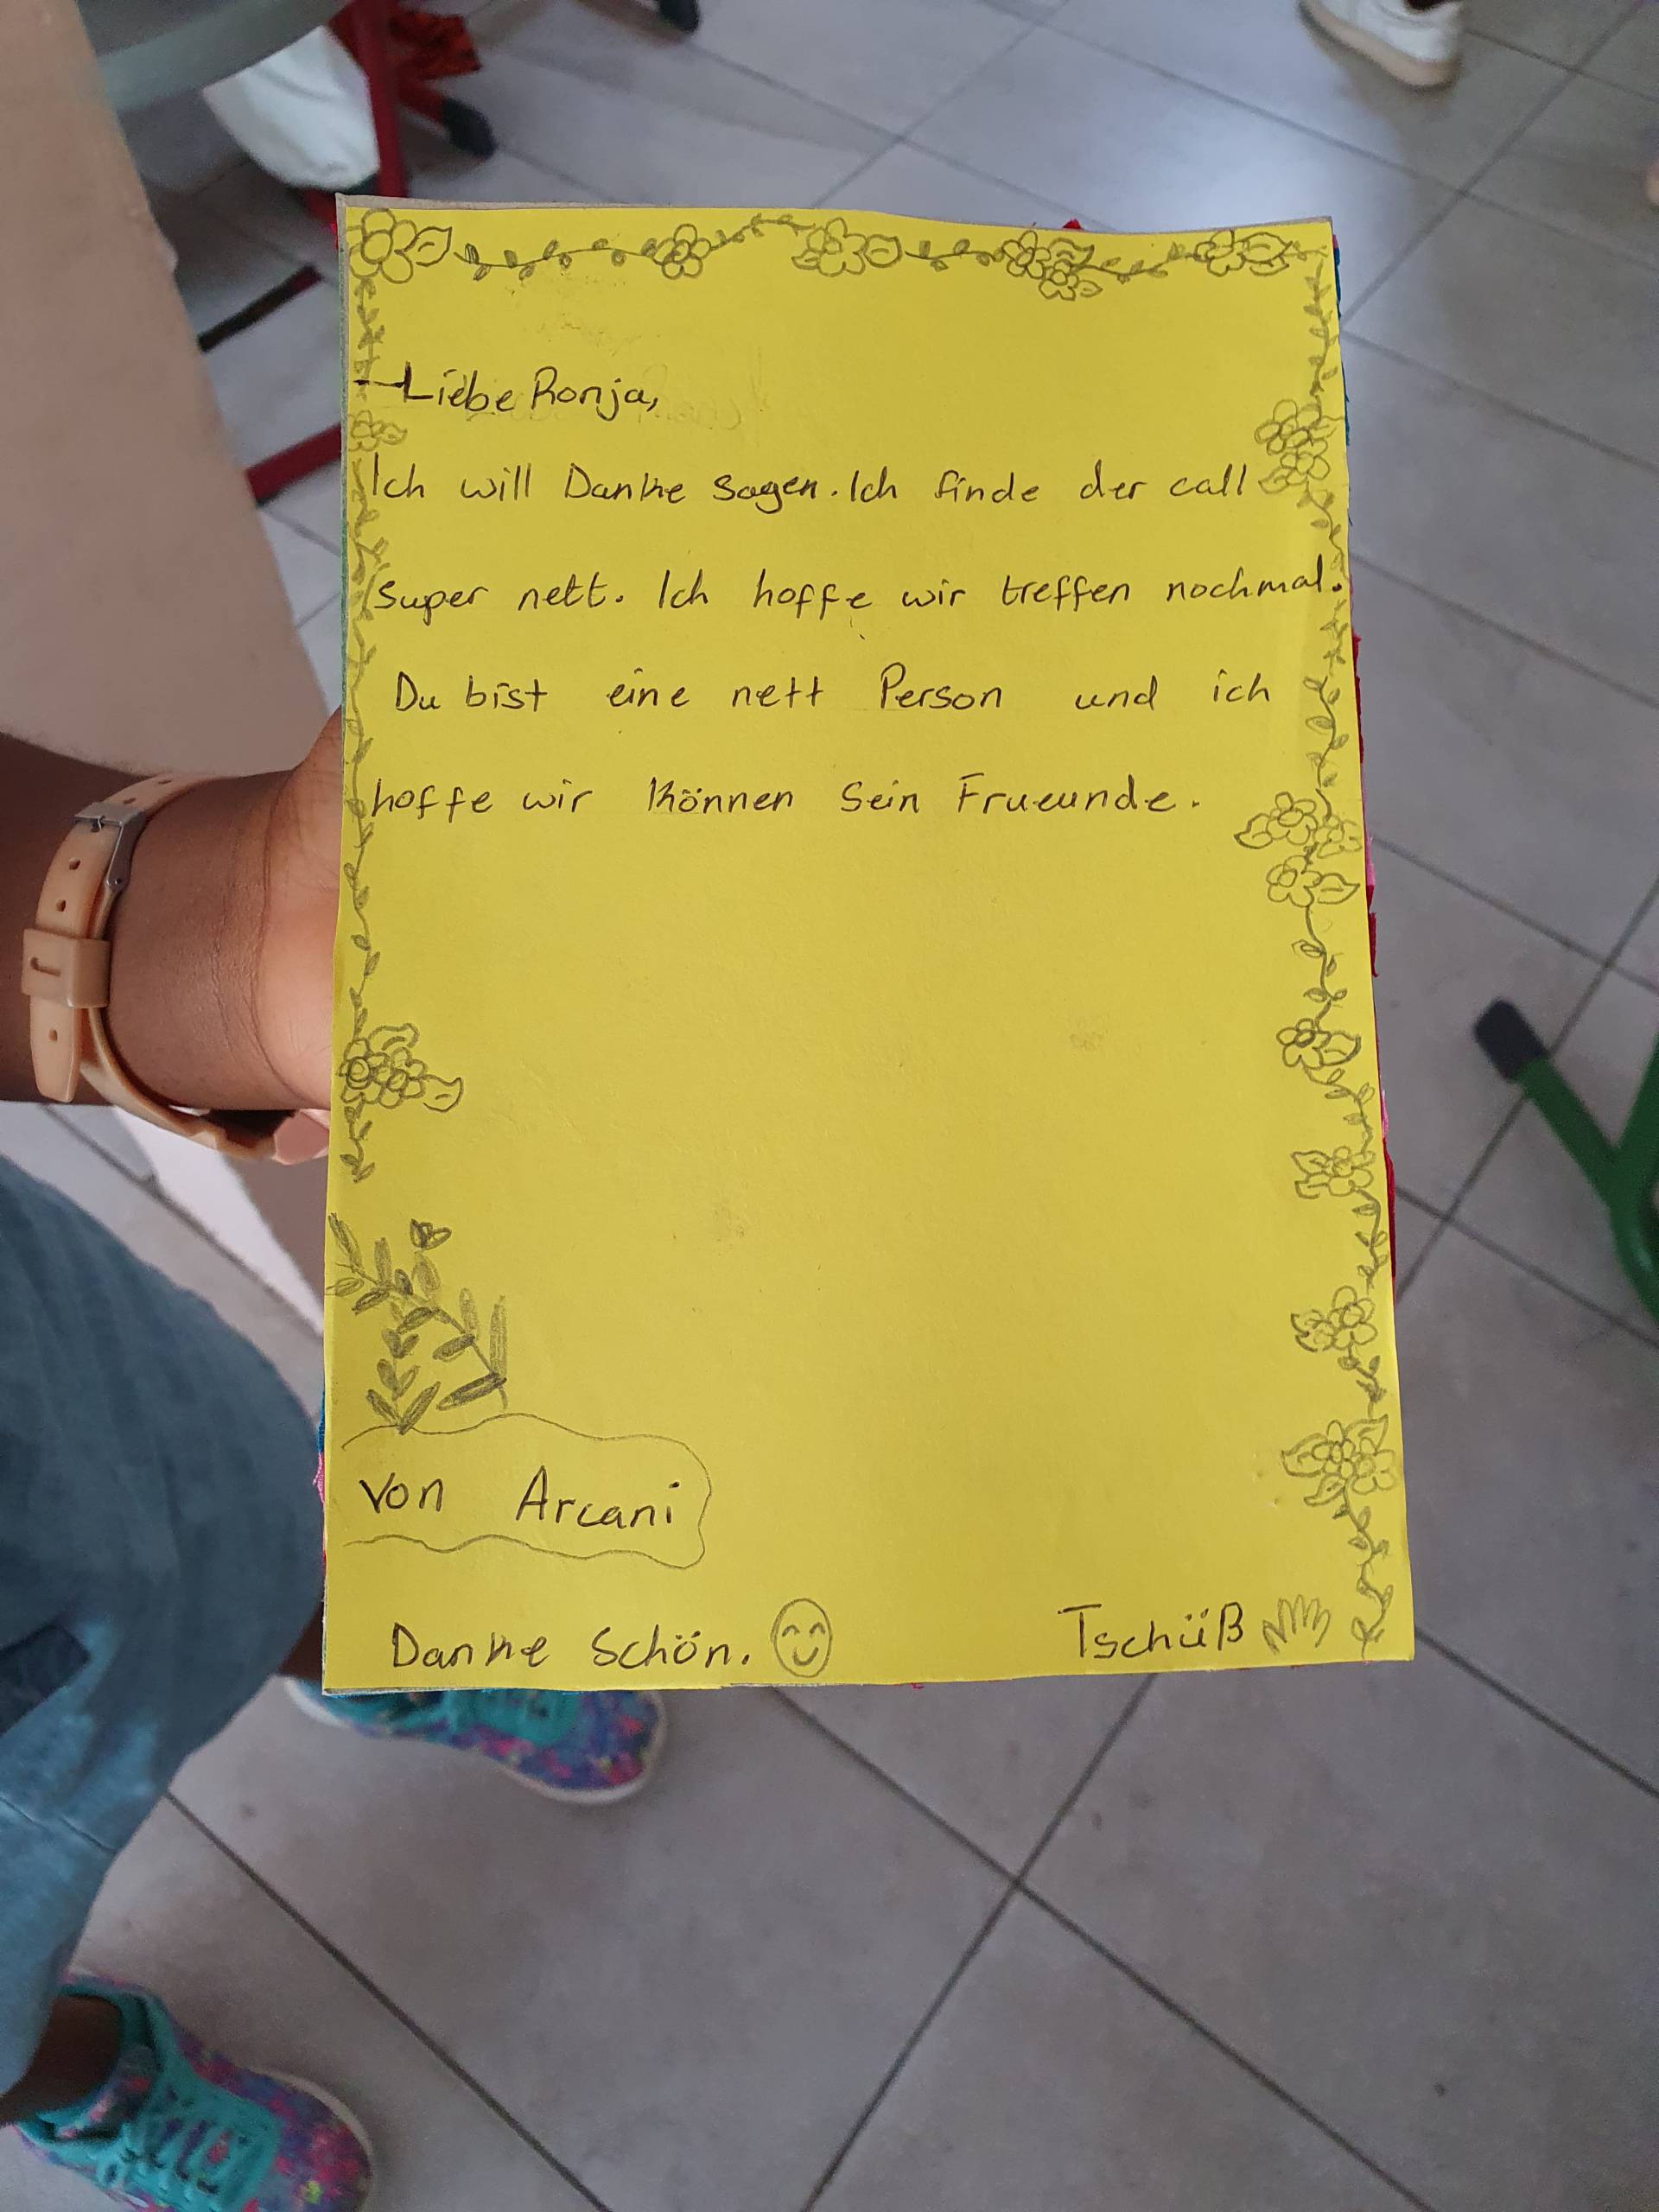 Liebe Ronja,
Ich will Danke sagen. Ich finde der call
super nett. Ich hoffe wir treffen nochmal.
Du bist eine nett Person und ich
hoffe wir können sein Frueunde.
von Arcani
Danke schön.
Tschüß